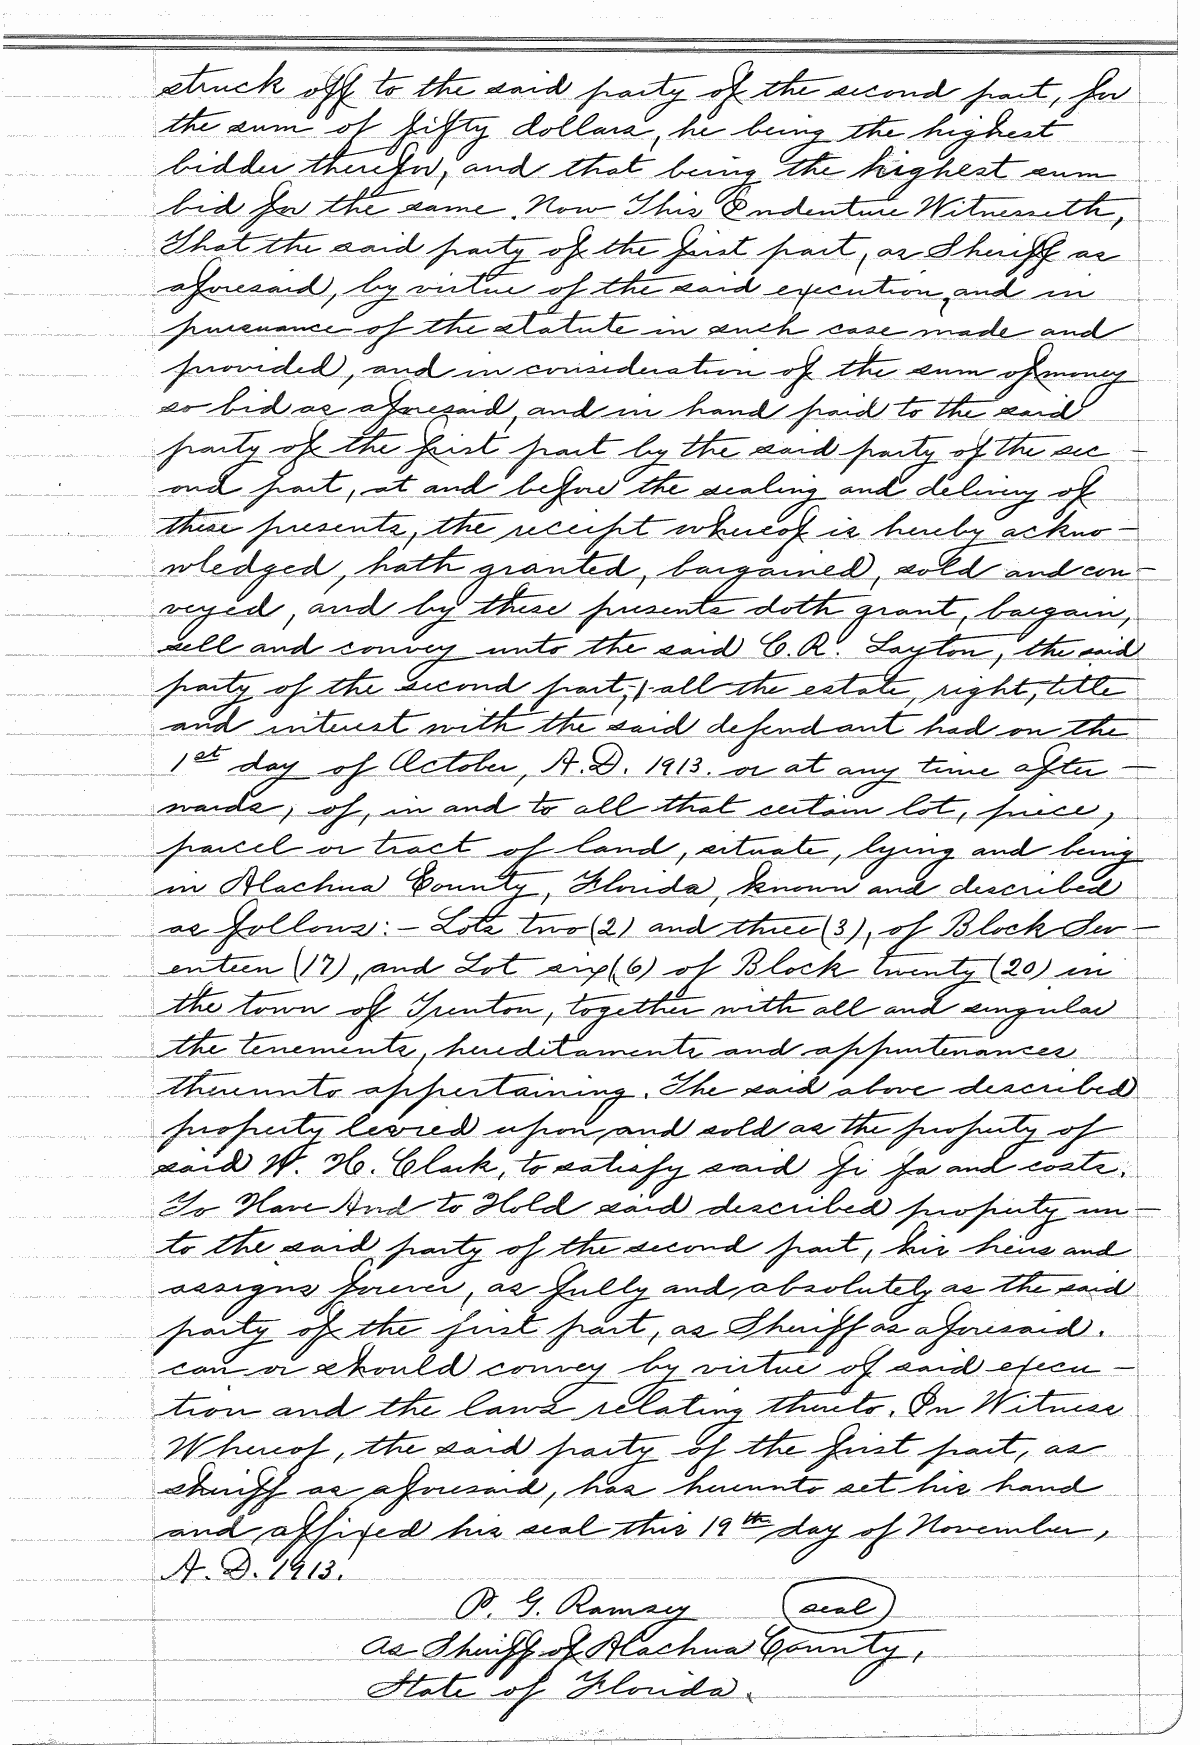 struck off to the said party of the second part, for
the sum of fifty dollars, he being the highest
bidder therefor, and that being the highest sum
bid for the same. Now This Indenture Witnesseth,
That the said party of the first part, as Sheriff as
aforesaid, by virtue of the said execution, and in
pursuance of the statute in such case made and
provided, and in consideration of the sum of money
so bid as aforesaid, and in hand paid to the said
party of the first part by the said party of the sec-
ond part, at and before the sealing and delivery of
these presents, the receipt whereof is hereby ackno-
wledged, hath granted, bargained, sold and con-
veyed, and by these presents doth grant, bargain,
sell and convey unto the said C. R. Layton, the said
party of the second part, all the estate, right, title
and interest with the said defendant had on the
1st day of October, A.D. 1913. or at any time after-
wards, of, in and to all that certain lot, piece,
parcel or tract of land, situate, lying and being
in Alachua County, Florida, known and described
as follows:- Lots two (2) and three (3), of Block Sev-
enteen (17), and Lot six (6) of Block twenty (20) in
the town of Trenton, together with all and singular
the tenements, hereditaments and appurtenances
thereunto appertaining. The said above described
property levied upon and sold as the property of
said W. H. Clark, to satisfy said fi fa and costs.
To Have And to Hold said described property un-
to the said party of the second part, his heirs and
assigns forever, as fully and absolutely as the said
party of the first part, as Sheriff as aforesaid.
can or should convey by virtue of said execu-
tion and the laws relating thereto. In Witness
Whereof, the said party of the first part, as
sheriff as aforesaid, has hereunto set his hand
and affixed his seal this 19th day of November,
A. D. 1913.
P. G. Ramsey (seal)
as Sheriff of Alachua County,
State of Florida.